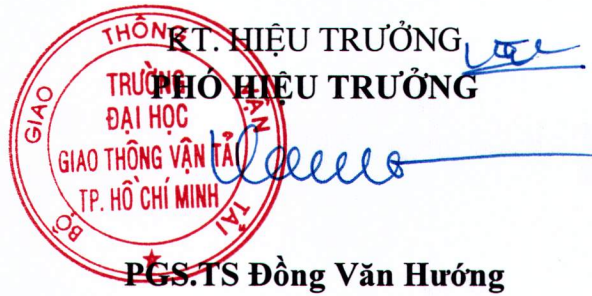 KT. HIỆU TRƯỞNG
PHÓ HIỆU TRƯỞNG
BỘ GIAO THÔNG VẬN TẢI
TRƯỜNG
ĐẠI HỌC
GIAO THÔNG VẬN TẢI
TP. HỒ CHÍ MINH
PGS.TS Đồng Văn Hướng